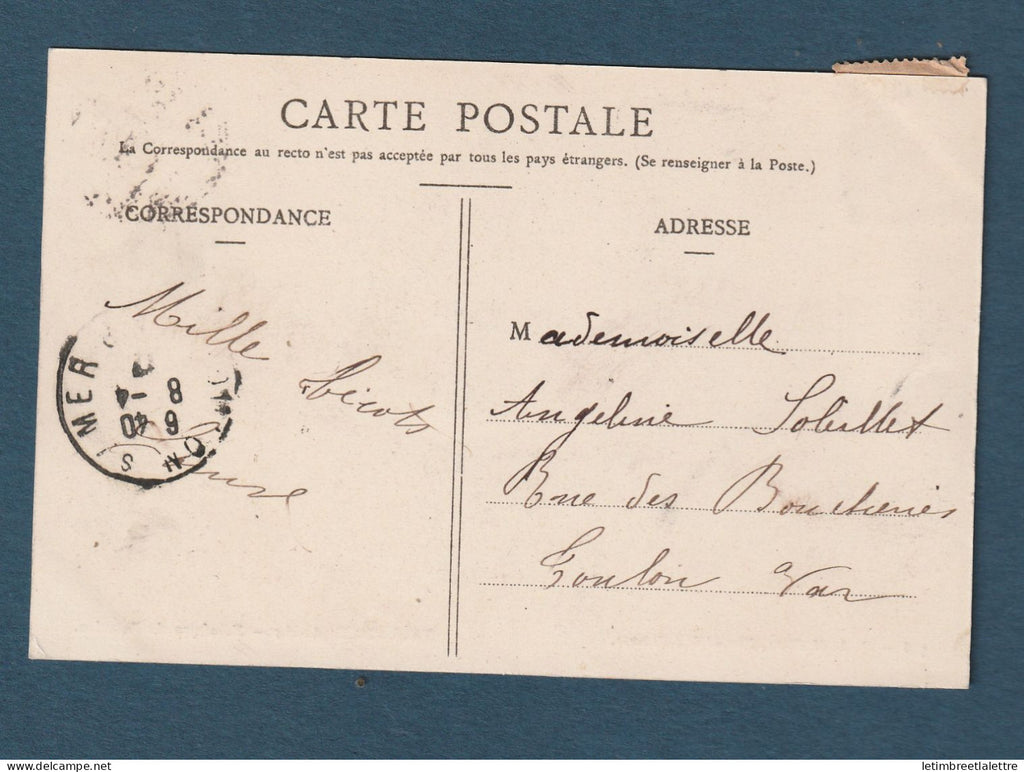 CARTE POSTALE
La Correspondance au recto n'est pas acceptée par tous les pays étrangers. (Se renseigner à la Poste.)
CORRESPONDANCE
ADRESSE
Mille
bécots
Mademoiselle
Angeline
Rue des Boucheries
Toulon Var
S MER
8 -4
www.delcampe.net
letimbreetlalettre